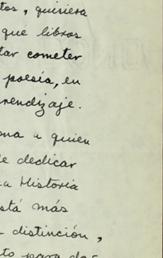 tos, quisiera
qué libros
tar cometer
poesía, en
rendizaje.
ona a quien
e dedicar
a Historia
stá más
distinción,
to para do-